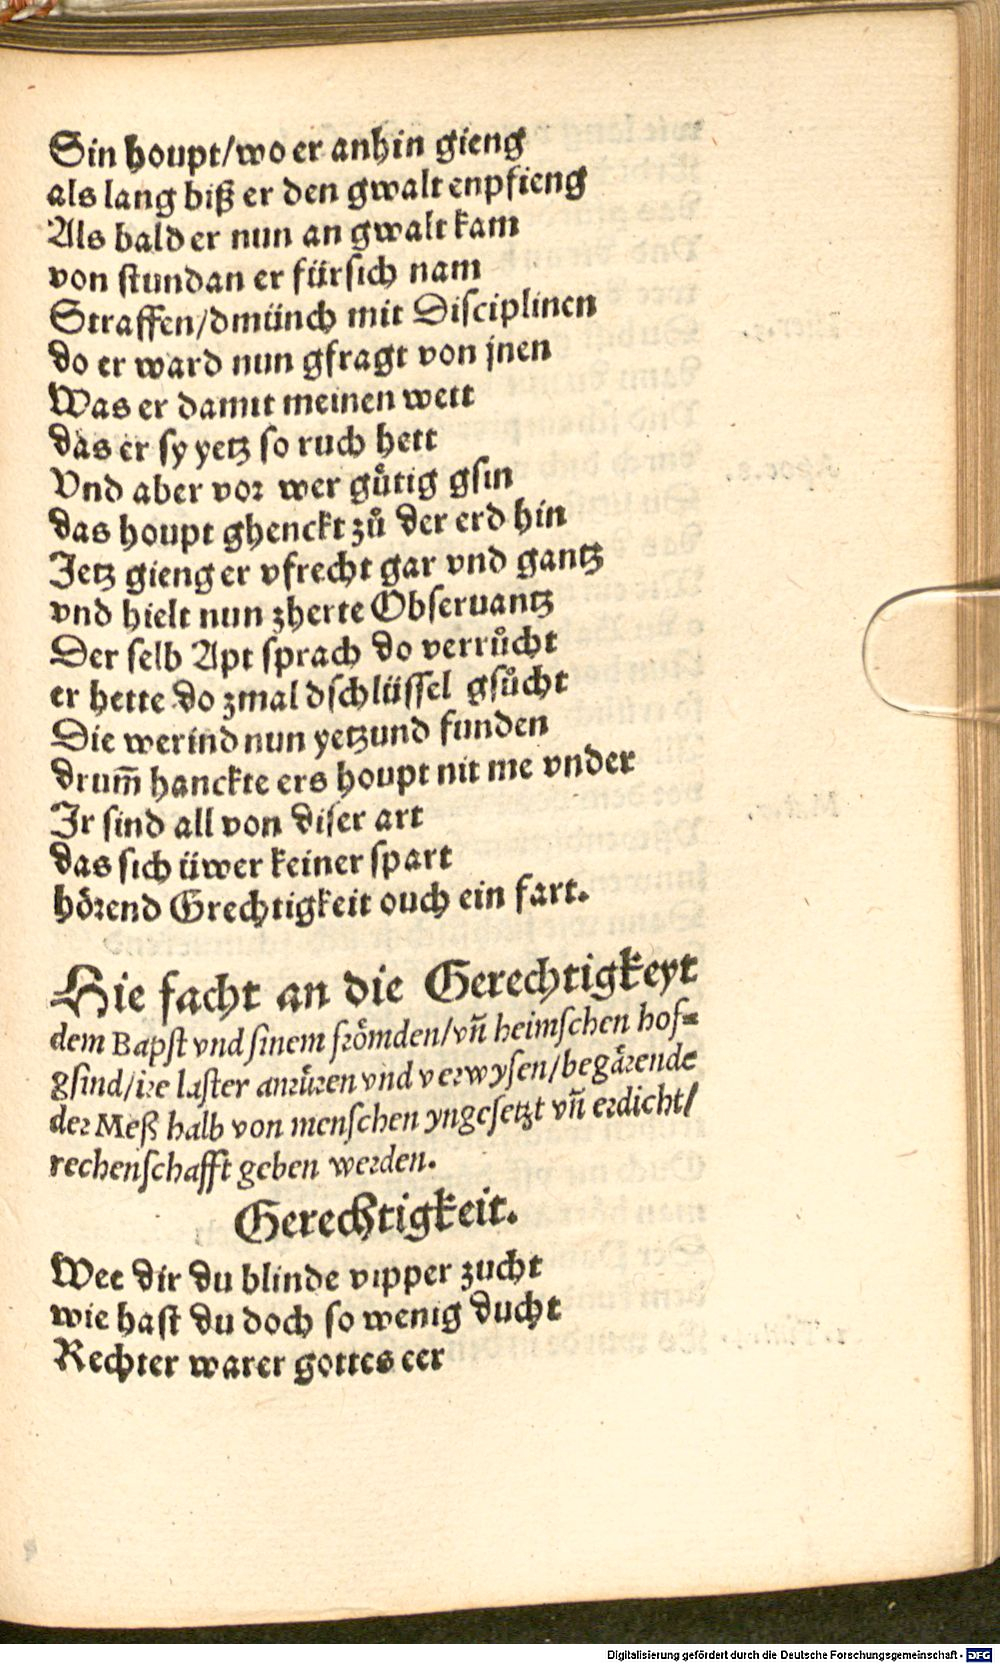 Sin houpt/wo er anhin gieng
als lang biß er den gwalt enpfieng
Als bald er nun an gwalt kam
von stundan er fürsich nam
Straffen/dmünch mit Disciplinen
do er ward nun gfragt von jnen
Was er damit meinen wett
das er sy yetz so ruch hett
Vnd aber vor wer guͤtig gsin
das houpt ghenckt zů der erd hin
Jetz gieng er vfrecht gar vnd gantz
vnd hielt nun zherte Obseruantz
Der selb Apt sprach do verrůcht
er hette do zmal dschlüssel gsůcht
Die werind nun yetzund funden
drum̃ hanckte ers houpt nit me vnder
Ir sind all von diser art
das sich üwer keiner spart
hoͤrend Grechtigkeit ouch ein fart.
Hie facht an die Gerechtigkeyt
dem Bapst vnd sinem froͤmden/vñ heimschen hof⸗
gsind/ire laster anruͤren vnd verwysen/begaͤrende
der Meß halb von menschen yngesetzt vñ erdicht/
rechenschafft geben werden.
Gerechtigkeit.
Wee dir du blinde vipper zucht
wie hast du doch so wenig ducht
Rechter warer gottes eer
Digitalisierung gefördert durch die Deutsche Forschungsgemeinschaft - DFG